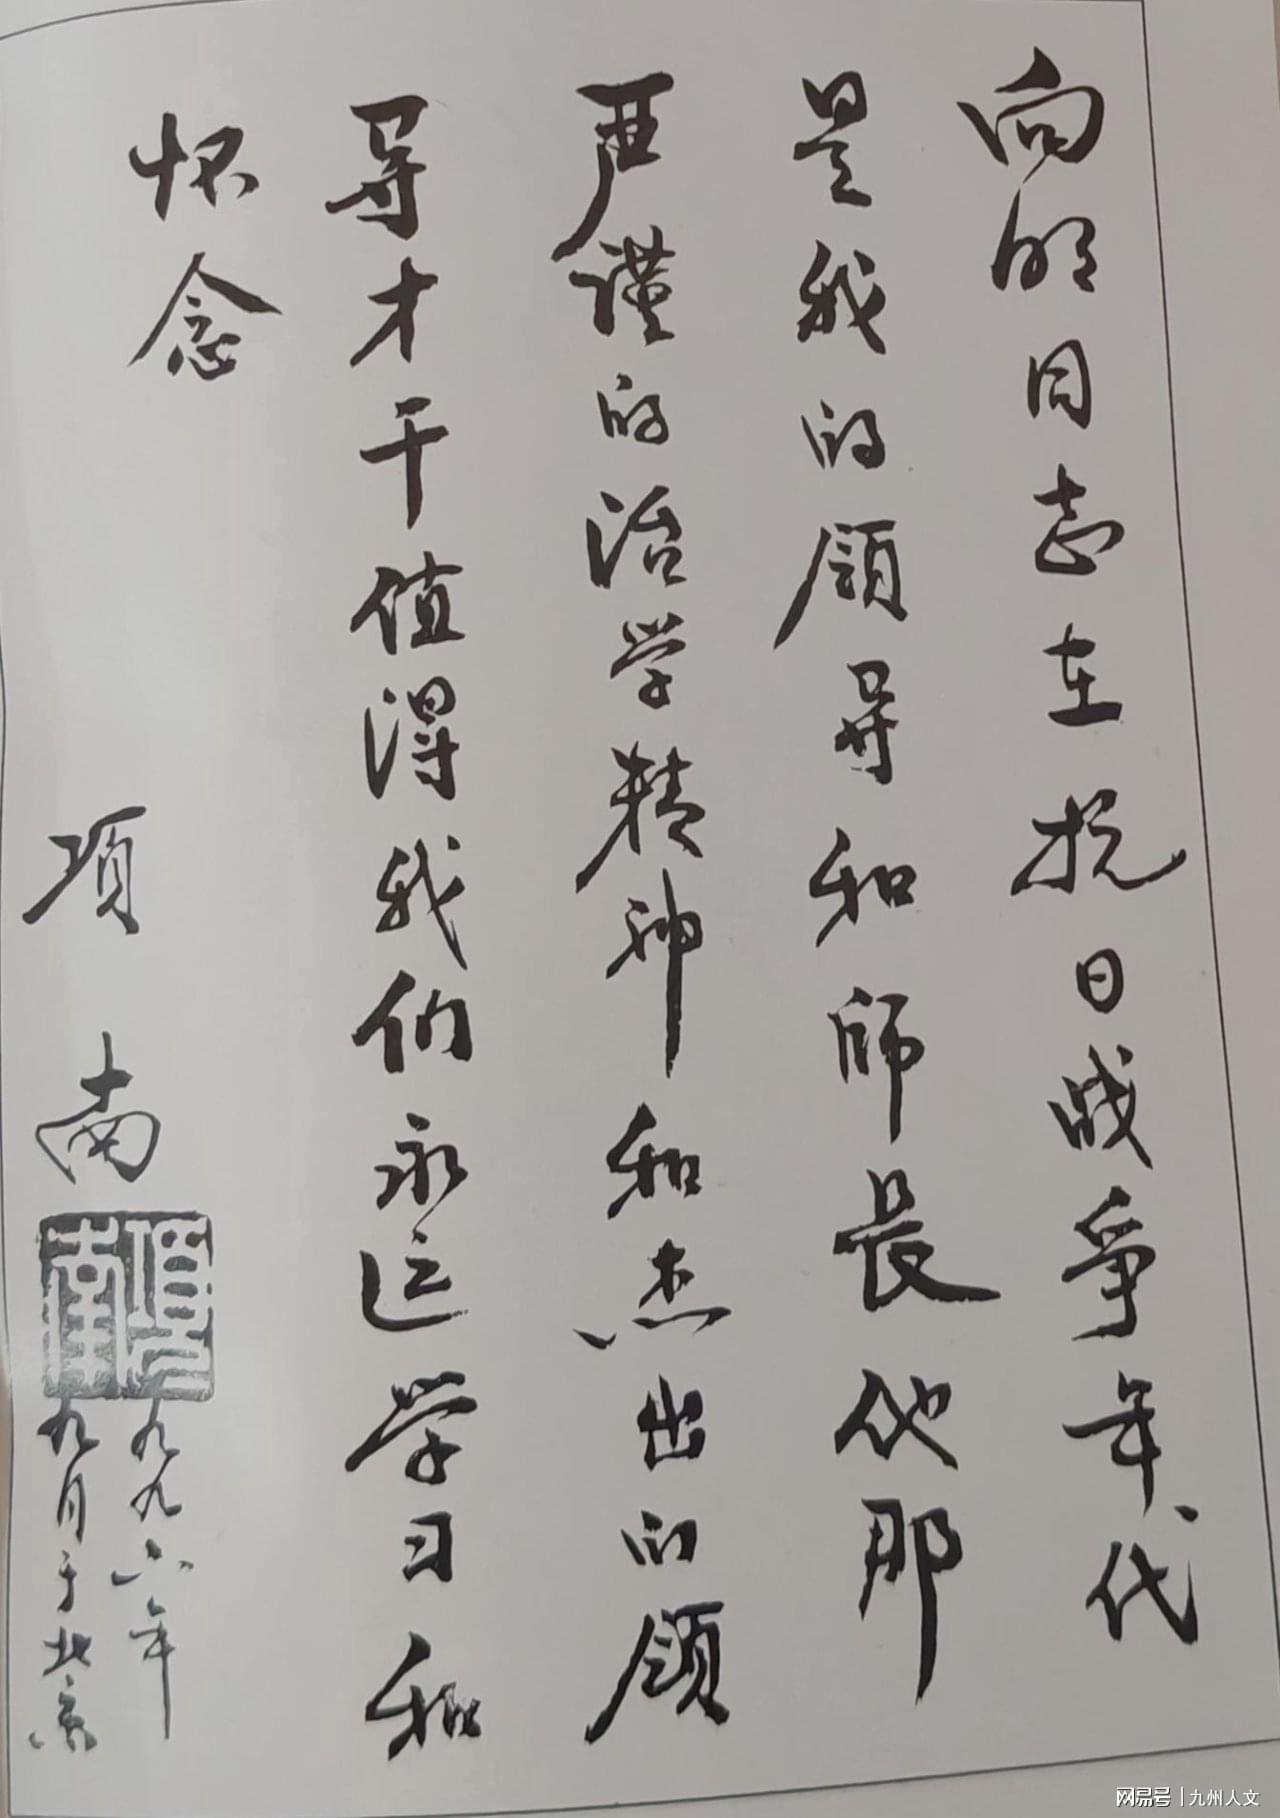 向明同志在抗日战争年代
是我的领导和师长他那
严谨的治学精神和杰出的领
导才干值得我们永远学习和
怀念
项南
项南
九九六年
九月于北京
网易号 | 九州人文